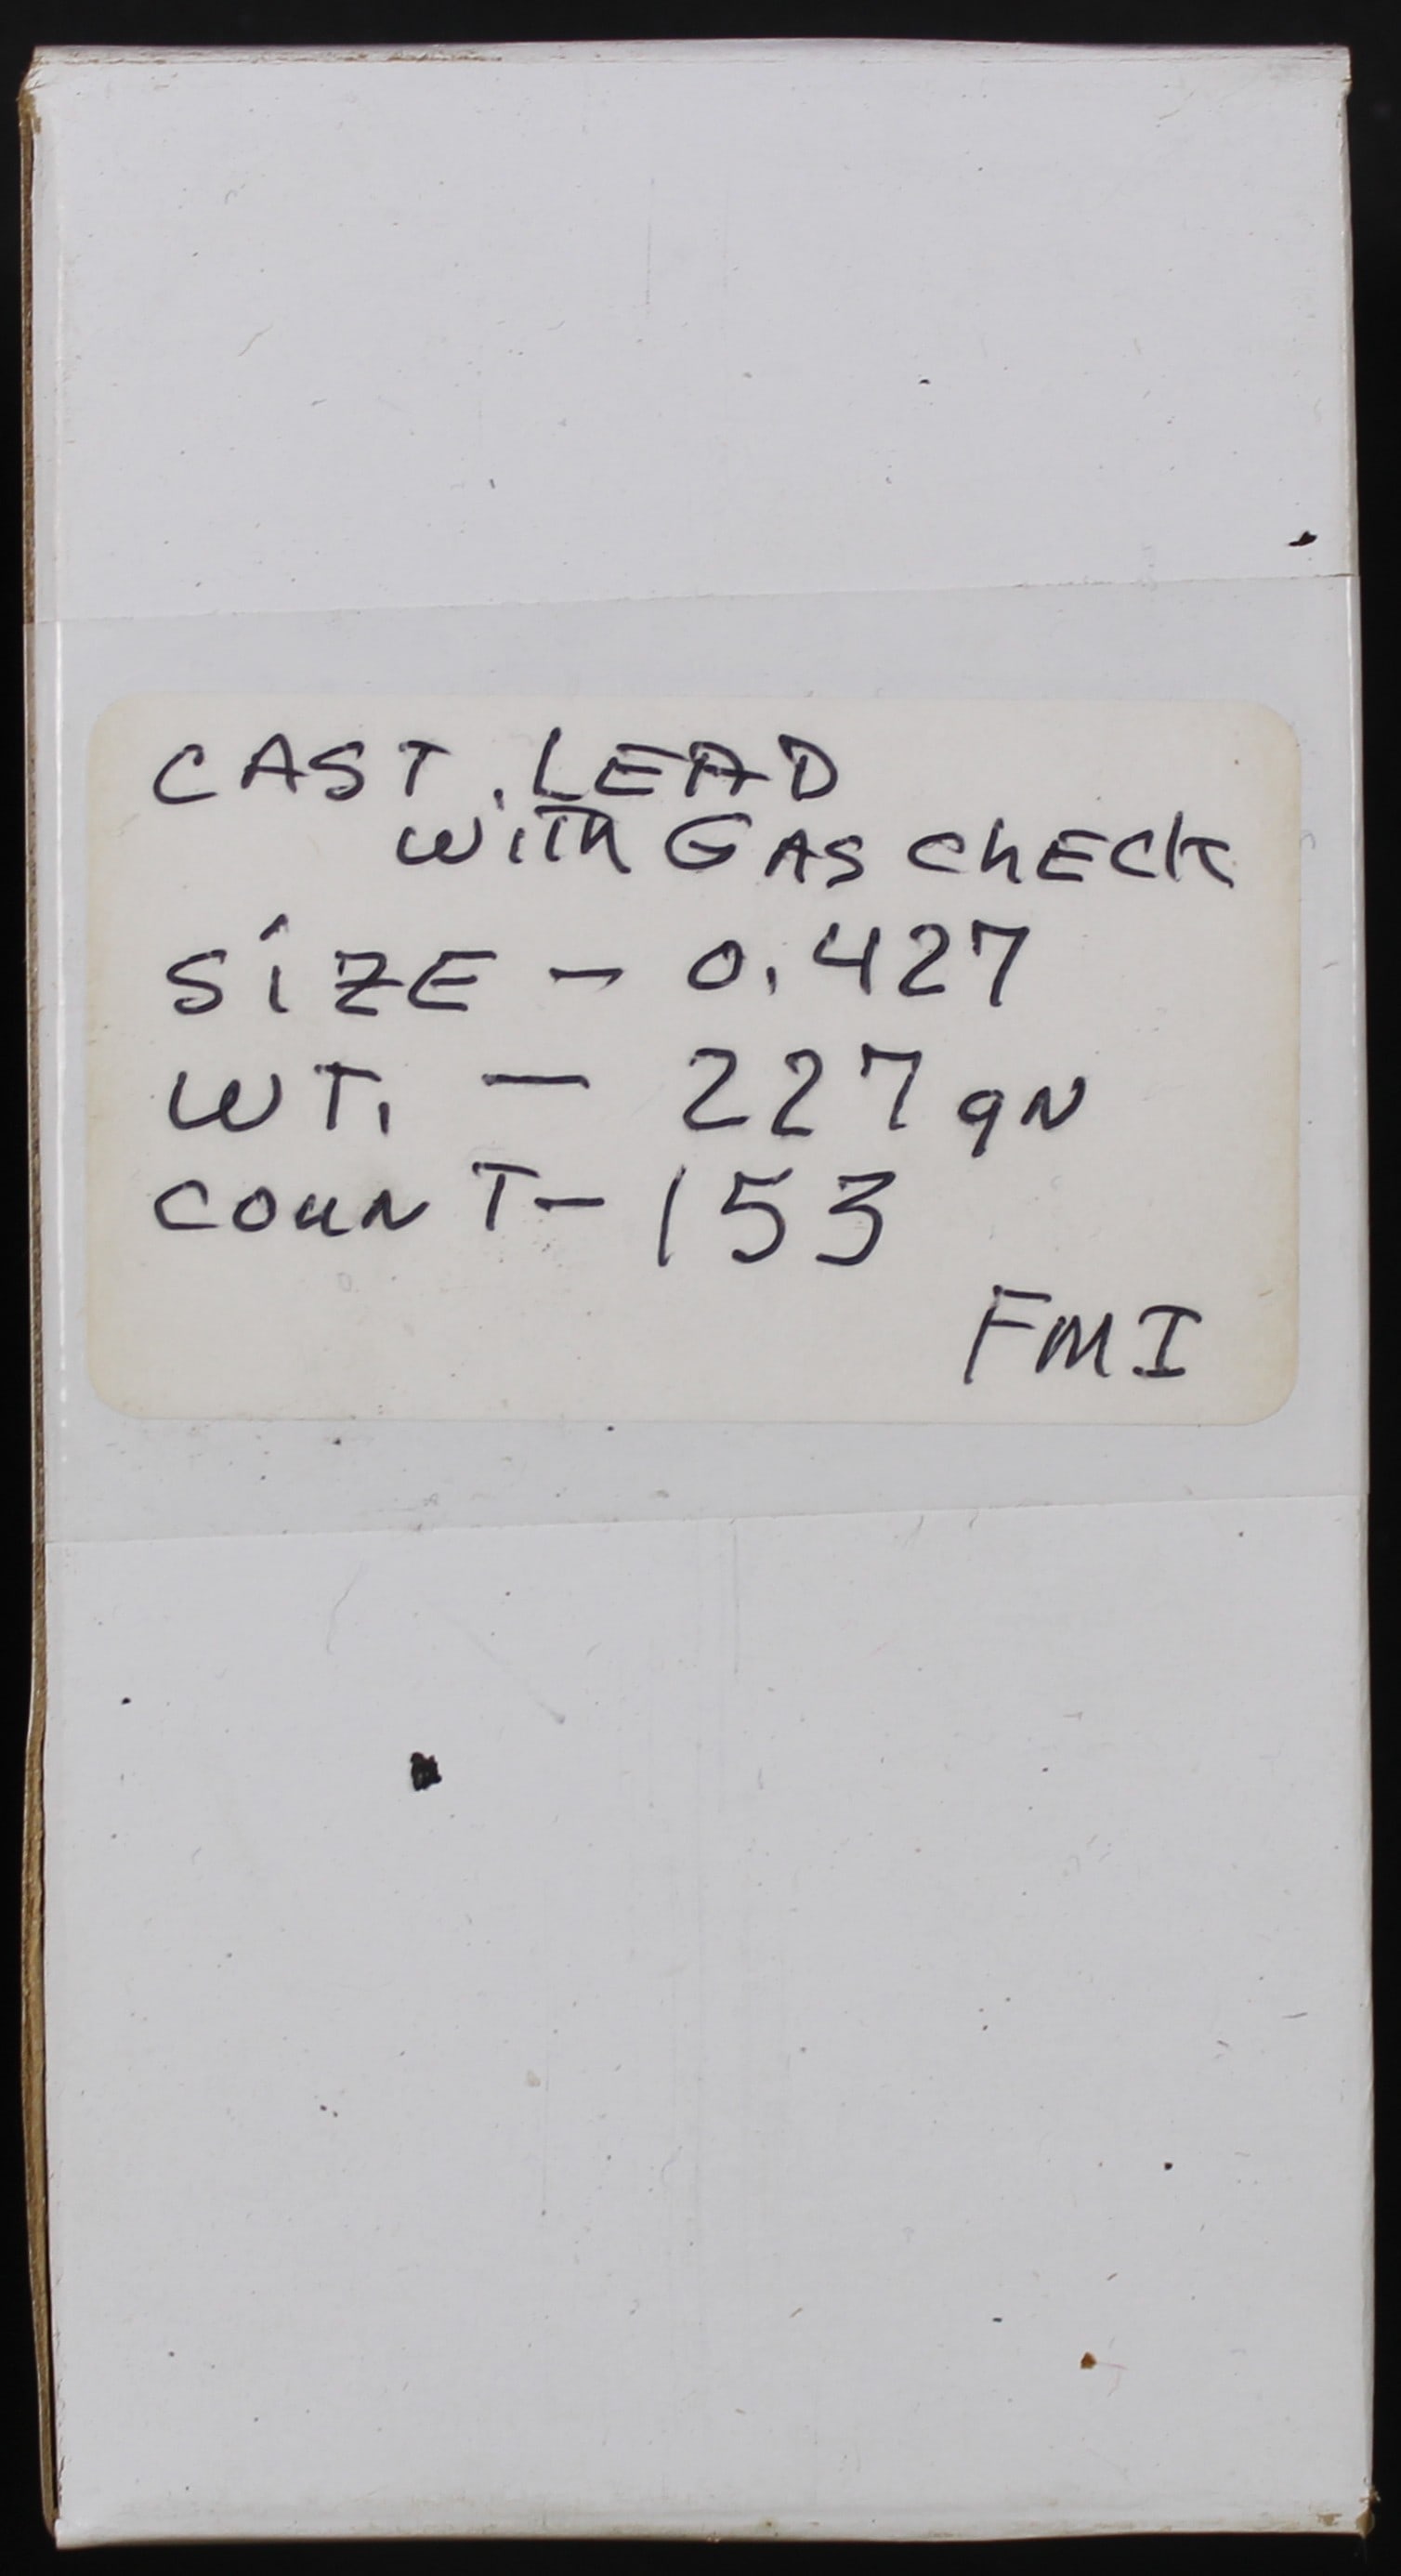 CAST LEAD
with GAS CHECK
SIZE - 0.427
WT. - 227 gN
COUNT - 153
FMI